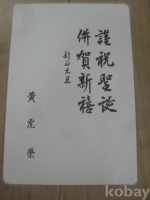 謹祝聖誕
併賀新禧
黃虎榮
kobay